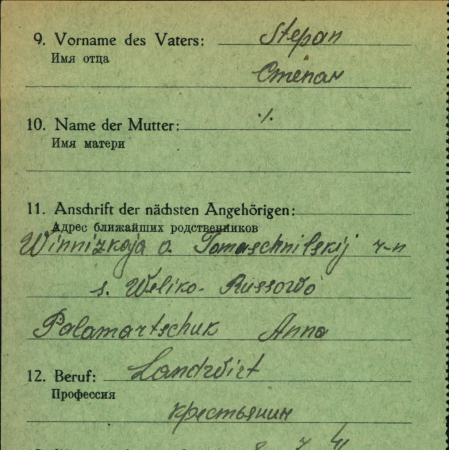 9. Vorname des Vaters: Stepan
Имя отца
Степан
10. Name der Mutter: ·/.
Имя матери
11. Anschrift der nächsten Angehörigen:
Адрес ближайших родственников
Winnizkaja o. Tomaschpilskij r-n
s. Weliko-Russowo
Palamartschuk Anna
12. Beruf: Landwirt
Профессия
крестьянин